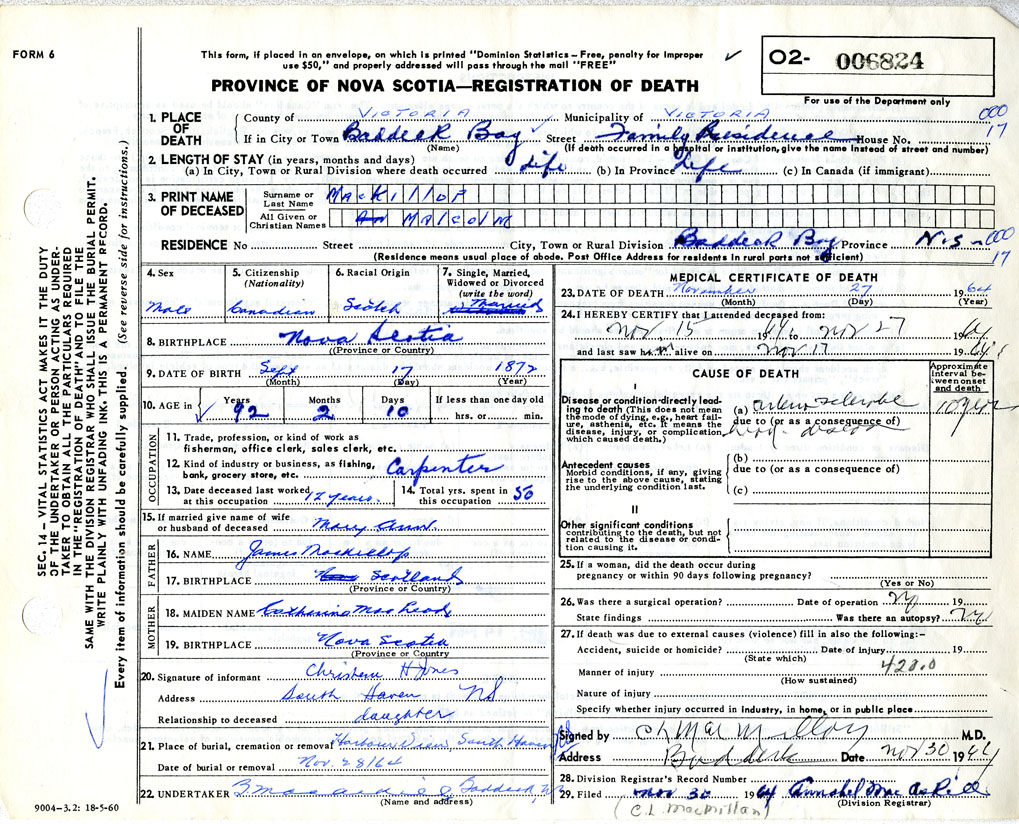 FORM 6
This form, if placed in an envelope, on which is printed "Dominion Statistics – Free, penalty for improper
use $50," and properly addressed will pass through the mail "FREE"
✓
O2- 006824
For use of the Department only
PROVINCE OF NOVA SCOTIA—REGISTRATION OF DEATH
SEC. 14 – VITAL STATISTICS ACT MAKES IT THE DUTY
OF THE UNDERTAKER OR PERSON ACTING AS UNDER-
TAKER TO OBTAIN ALL THE PARTICULARS REQUIRED
IN THE "REGISTRATION OF DEATH" AND TO FILE THE
SAME WITH THE DIVISION REGISTRAR WHO SHALL ISSUE THE BURIAL PERMIT.
WRITE PLAINLY WITH UNFADING INK. THIS IS A PERMANENT RECORD.
Every item of information should be carefully supplied. (See reverse side for instructions.)
1. PLACE OF DEATH
County of VICTORIA Municipality of VICTORIA 000
If in City or Town Baddeck Bay ✓ Street Family Residence House No. 17
(Name) (If death occurred in a hospital or institution, give the name instead of street and number)
2. LENGTH OF STAY (in years, months and days)
(a) In City, Town or Rural Division where death occurred life (b) In Province Life (c) In Canada (if immigrant)
3. PRINT NAME OF DECEASED
Surname or Last Name MACKILLOP
All Given or Christian Names MALCOLM
RESIDENCE No Street City, Town or Rural Division Baddeck Bay Province N.S. 000
(Residence means usual place of abode. Post Office Address for residents in rural parts not sufficient) 17
4. Sex Male
5. Citizenship (Nationality) Canadian
6. Racial Origin Scotch
7. Single, Married, Widowed or Divorced (write the word) Married
8. BIRTHPLACE Nova Scotia
((Province or Country)
9. DATE OF BIRTH Sept 17 1872
(Month) (Day) (Year)
10. AGE in ✓ Years 92 Months 2 Days 10 If less than one day old
hrs. or min.
OCCUPATION
11. Trade, profession, or kind of work as
fisherman, office clerk, sales clerk, etc.
12. Kind of industry or business, as fishing,
bank, grocery store, etc. Carpenter
13. Date deceased last worked at this occupation 12 years.
14. Total yrs. spent in this occupation 50
15. If married give name of wife
or husband of deceased Mary Ann.
FATHER
16. NAME James MacKillop
17. BIRTHPLACE Scotland
(Province or Country)
MOTHER
18. MAIDEN NAME Catherine MacLeod
19. BIRTHPLACE Nova Scotia
(Province or Country)
20. Signature of informant Christena H Jones
Address South Haven NS
Relationship to deceased daughter
21. Place of burial, cremation or removal Harbour View, South Haven
Date of burial or removal Nov. 28/64
22. UNDERTAKER Baddeck,
(Name and address)
MEDICAL CERTIFICATE OF DEATH
23. DATE OF DEATH November 27 1964
(Month) (Day) (Year)
24. I HEREBY CERTIFY that I attended deceased from:
Nov 15 1964 to Nov 27 1964
and last saw him alive on Nov 17 1964
CAUSE OF DEATH
Approximate Interval between onset and death
I
Disease or condition directly leading to death (This does not mean the mode of dying, e.g., heart failure, asthenia, etc. It means the disease, injury, or complication which caused death.)
(a) 10 years
due to (or as a consequence of)
disease
Antecedent causes
Morbid conditions, if any, giving rise to the above cause, stating the underlying condition last.
(b)
due to (or as a consequence of)
(c)
II
Other significant conditions
contributing to the death, but not related to the disease or condition causing it.
25. If a woman, did the death occur during
pregnancy or within 90 days following pregnancy?
(Yes or No)
26. Was there a surgical operation? Date of operation 19
State findings Was there an autopsy?
27. If death was due to external causes (violence) fill in also the following:–
Accident, suicide or homicide? Date of injury 19
(State which) 420.0
Manner of injury
(How sustained)
Nature of injury
Specify whether injury occurred in industry, in home, or in public place
Signed by C L MacMillan M.D.
Address Baddeck Date Nov 30 1964
28. Division Registrar's Record Number
29. Filed Nov 30 1964 Annabel MacAskill
(C.L. MacMillan) (Division Registrar)
9004–3.2: 18-5-60